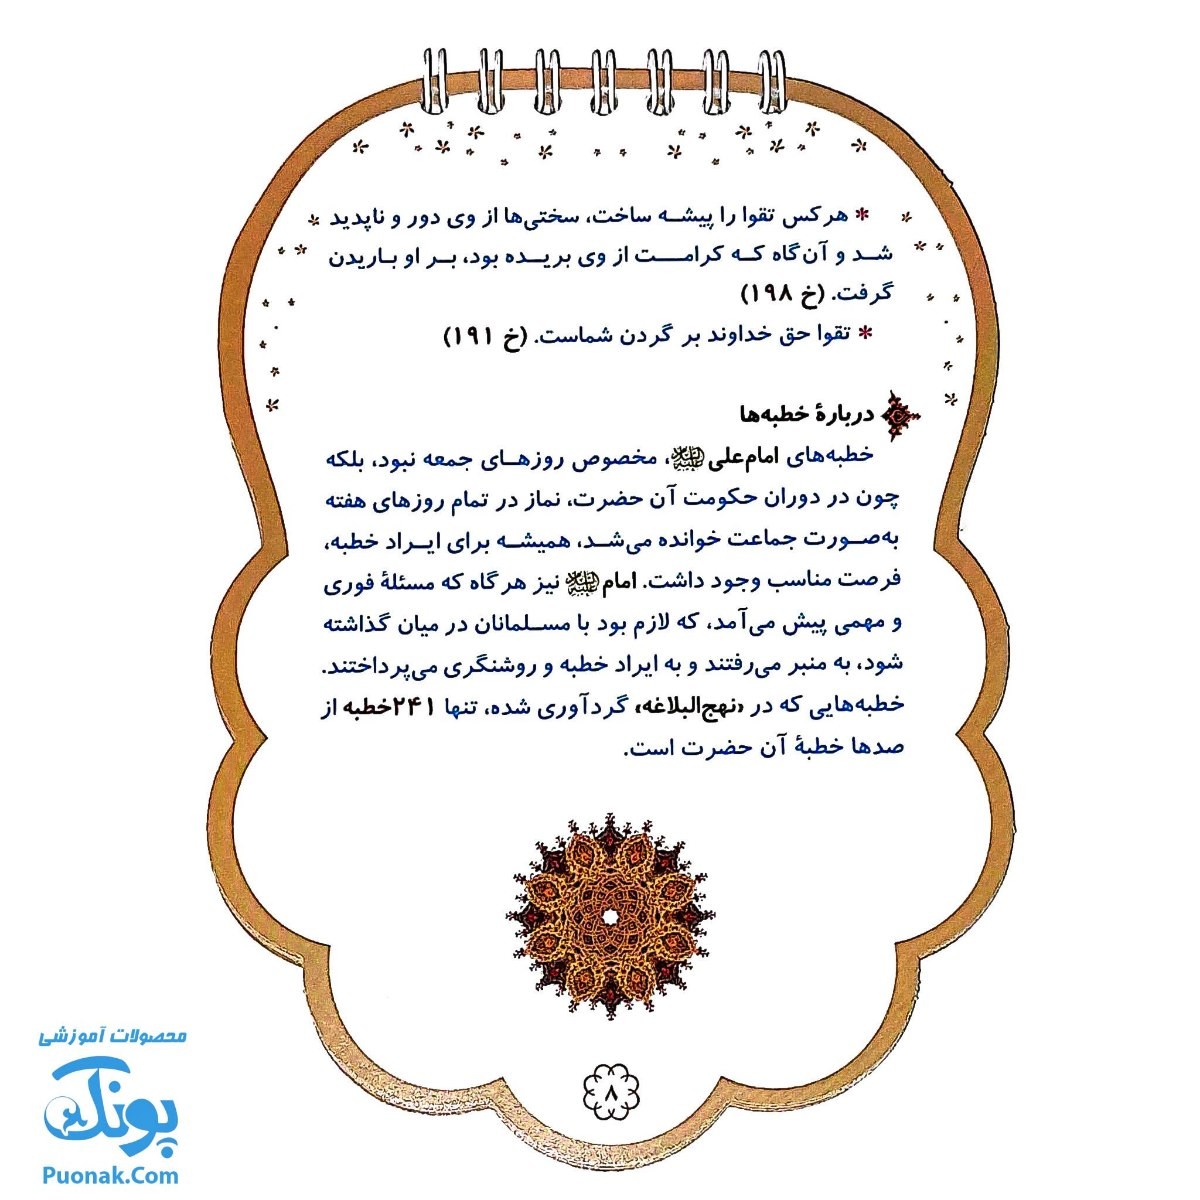 * هرکس تقوا را پیشـه ساخت، سختی‌ها از وی دور و ناپدید
شـد و آن‌گاه کـه کرامـت از وی بریـده بود، بـر او باریدن
گرفت. (خ ۱۹۸)
* تقوا حق خداوند بر گردن شماست. (خ ۱۹۱)
دربارۀ خطبه‌ها
خطبه‌های امام‌علی علیه‌السلام، مخصوص روزهـای جمعه نبود، بلکه
چون در دوران حکومت آن حضرت، نماز در تمام روزهای هفته
به‌صـورت جماعت خوانده می‌شـد، همیشـه برای ایـراد خطبه،
فرصت مناسب وجود داشت. امام علیه‌السلام نیز هرگاه که مسئلۀ فوری
و مهمی پیش می‌آمد، که لازم بود با مسـلمانان در میان گذاشته
شود، به منبر می‌رفتند و به ایراد خطبه و روشنگری می‌پرداختند.
خطبه‌هایی که در «نهج‌البلاغه» گردآوری شده، تنها ۲۴۱خطبه از
صدها خطبۀ آن حضرت است.
۸
محصولات آموزشی
پونک
Puonak.Com